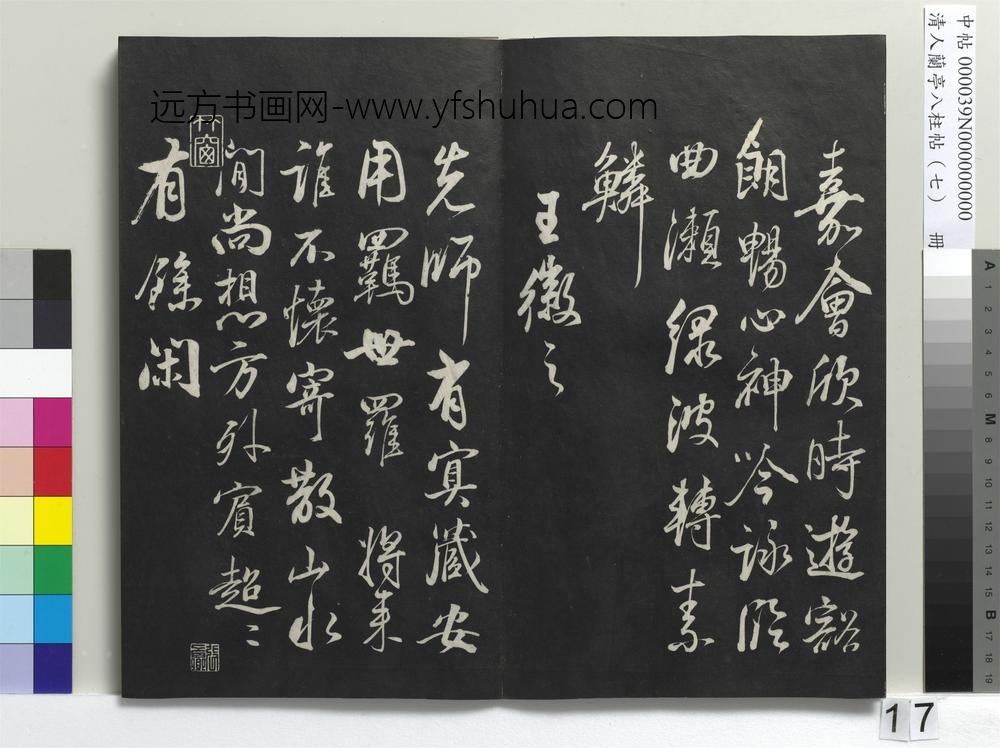 嘉會欣時遊豁
朗暢心神吟詠臨
曲瀨綠波轉素
鱗
王徽之
先師有冥藏安
用羈世羅將來
誰不懷寄散山水
間尚想方外賓超〻
有餘閑
竹窗
远方书画网-www.yfshuhua.com
中帖 000039N000000000
清人蘭亭八柱帖(七) 冊
A 1 2 3 4 5 6 M 8 9 10 11 12 13 14 15 B 17 18 19
17